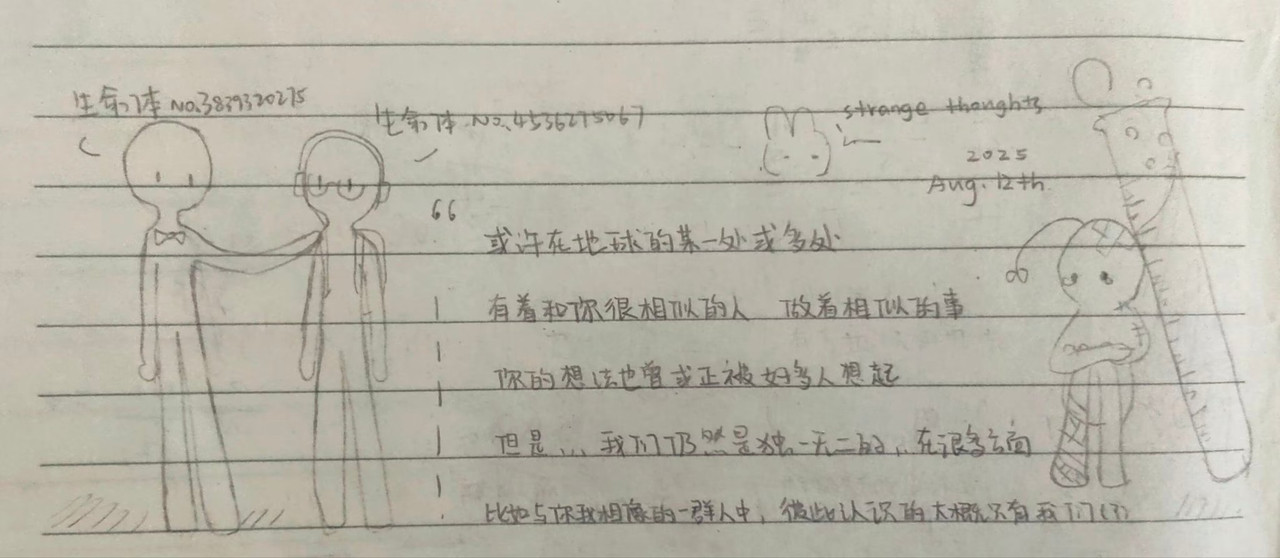 生命体 NO.3839320275
生命体 NO.4536275067
strange thoughts
2025
Aug. 12th
“
或许在地球的某一处或多处
有着和你很相似的人 做着相似的事
你的想法也曾或正被好多人想起
但是... 我们仍然是独一无二的.. 在很多方面
比如与你我相像的一群人中，彼此认识的大概只有我们